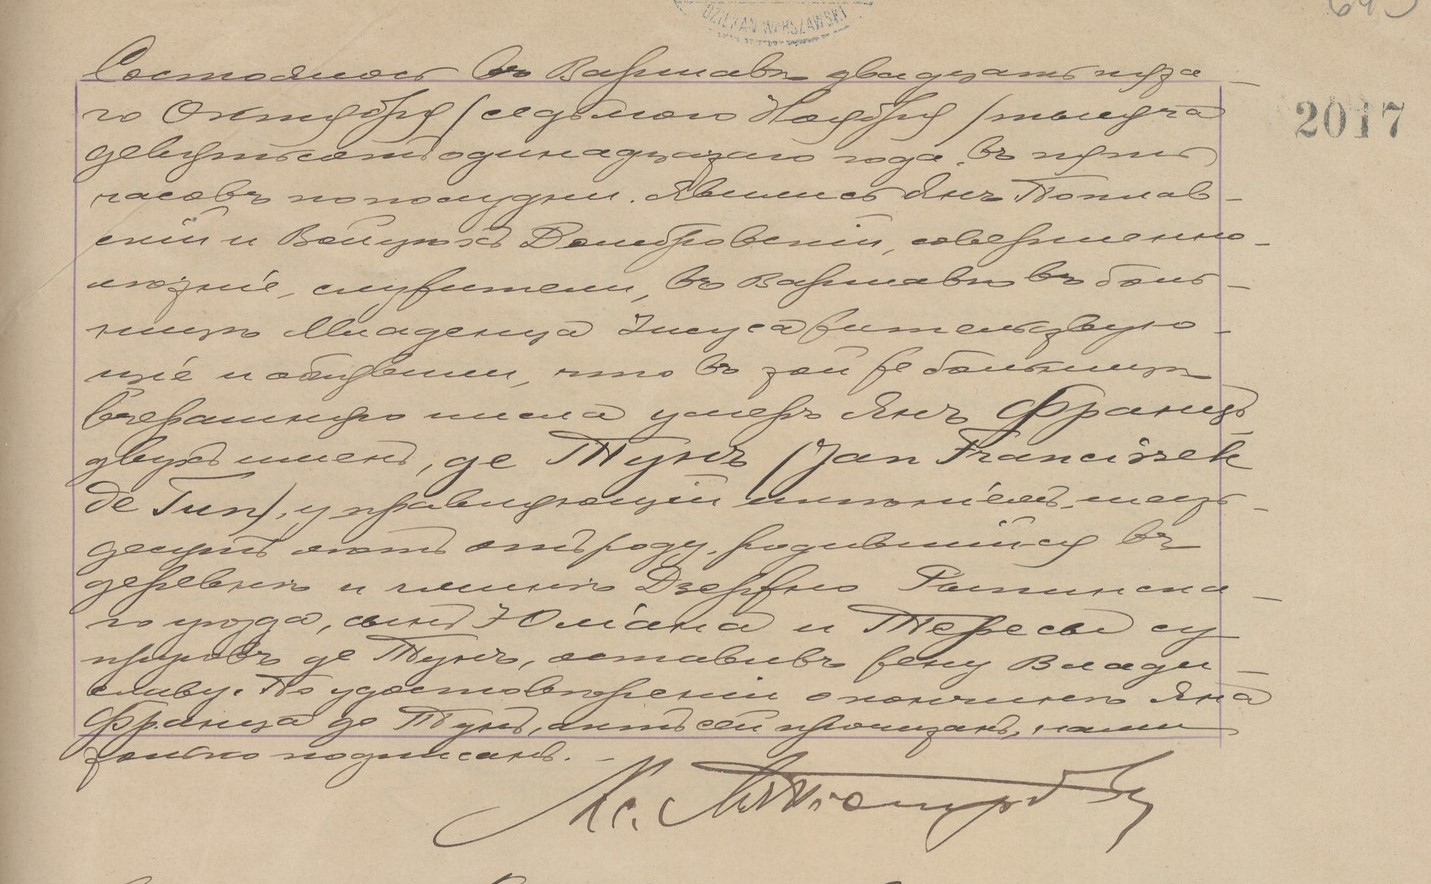 DZIEKAN WARSZAWSKI
2017
Состоялось въ Варшавѣ двадцать пята-
го Октября /седьмого Ноября/ тысяча
девятьсотъ одинадцатаго года, въ пять
часовъ пополудни. Явились Янъ Поплав-
скій и Войцѣхъ Домбровскій, совершенно-
лѣтніе, служители, въ Варшавѣ въ боль-
ницѣ Младенца Іисуса жительствую-
щіе и объявили, что въ той же больницѣ
вчерашняго числа умеръ Янъ Францъ
двухъ именъ, де Тунъ (Jan Franciszek
de Tun), управляющій имѣніемъ, шесть-
десятъ лѣтъ отъ роду, родившійся въ
деревнѣ и гминѣ Дзержно Рыпинска-
го уѣзда, сынъ Юліана и Тересы су-
пруговъ де Тунъ, оставивъ жену Влади-
славу. По удостовѣреніи о кончинѣ Яна
Франца де Тунъ, актъ сей прочитанъ, нами
только подписанъ. -
Кс.